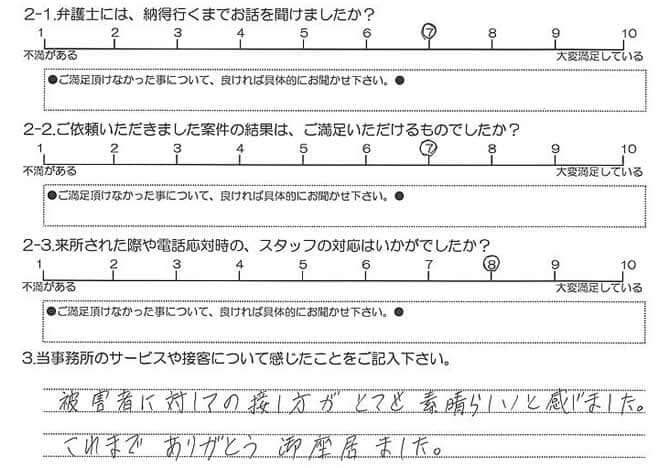 2-1.弁護士には、納得行くまでお話を聞けましたか？
1 2 3 4 5 6 7 8 9 10
不満がある 大変満足している
●ご満足頂けなかった事について、良ければ具体的にお聞かせ下さい。●
2-2.ご依頼いただきました案件の結果は、ご満足いただけるものでしたか？
1 2 3 4 5 6 7 8 9 10
不満がある 大変満足している
●ご満足頂けなかった事について、良ければ具体的にお聞かせ下さい。●
2-3.来所された際や電話応対時の、スタッフの対応はいかがでしたか？
1 2 3 4 5 6 7 8 9 10
不満がある 大変満足している
●ご満足頂けなかった事について、良ければ具体的にお聞かせ下さい。●
3.当事務所のサービスや接客について感じたことをご記入下さい。
被害者に対しての接し方がとても素晴らしいと感じました。
これまでありがとう御座居ました。